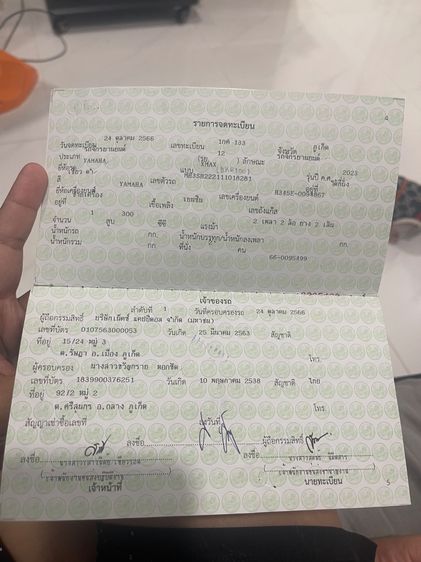 4
รายการจดทะเบียน
วันจดทะเบียน 24 ตุลาคม 2566 เลขทะเบียน 1กศ 133 จังหวัด ภูเก็ต
ประเภท รถจักรยานยนต์ (รย. 12 ) ลักษณะ รถจักรยานยนต์
ยี่ห้อรถ YAMAHA แบบ XMAX รุ่นปี ค.ศ. 2023
สี ขาว ดำ เลขตัวรถ อยู่ที่
ยี่ห้อเครื่องยนต์ YAMAHA เลขเครื่องยนต์
อยู่ที่ เชื้อเพลิง เบนซิน เลขถังแก๊ส
จำนวน 1 สูบ 300 ซีซี แรงม้า 2 เพลา 2 ล้อ ยาง 2 เส้น
น้ำหนักรถ กก. น้ำหนักบรรทุก/น้ำหนักลงเพลา กก.
น้ำหนักรวม กก. ที่นั่ง คน
66-0095499
เจ้าของรถ
ลำดับที่ 1 วันที่ครอบครองรถ 24 ตุลาคม 2566
ผู้ถือกรรมสิทธิ์ บริษัทเน็คซ์ แคปปิตอล จำกัด (มหาชน)
เลขที่บัตร 0107563000053 วันเกิด 25 มีนาคม 2563 สัญชาติ
ที่อยู่ 15/24 หมู่ 3
ต.รัษฎา อ.เมือง ภูเก็ต โทร.
ผู้ครอบครอง นางสาวขวัญกราย ดอกชัด
เลขที่บัตร 1839900376251 วันเกิด 10 พฤษภาคม 2538 สัญชาติ ไทย
ที่อยู่ 92/2 หมู่ 2
ต.ศรีสุนทร อ.ถลาง ภูเก็ต โทร.
สัญญาเช่าซื้อเลขที่ ลงวันที่
ลงชื่อ ผู้ถือกรรมสิทธิ์
ลงชื่อ ลงชื่อ
เจ้าหน้าที่ นายทะเบียน
5